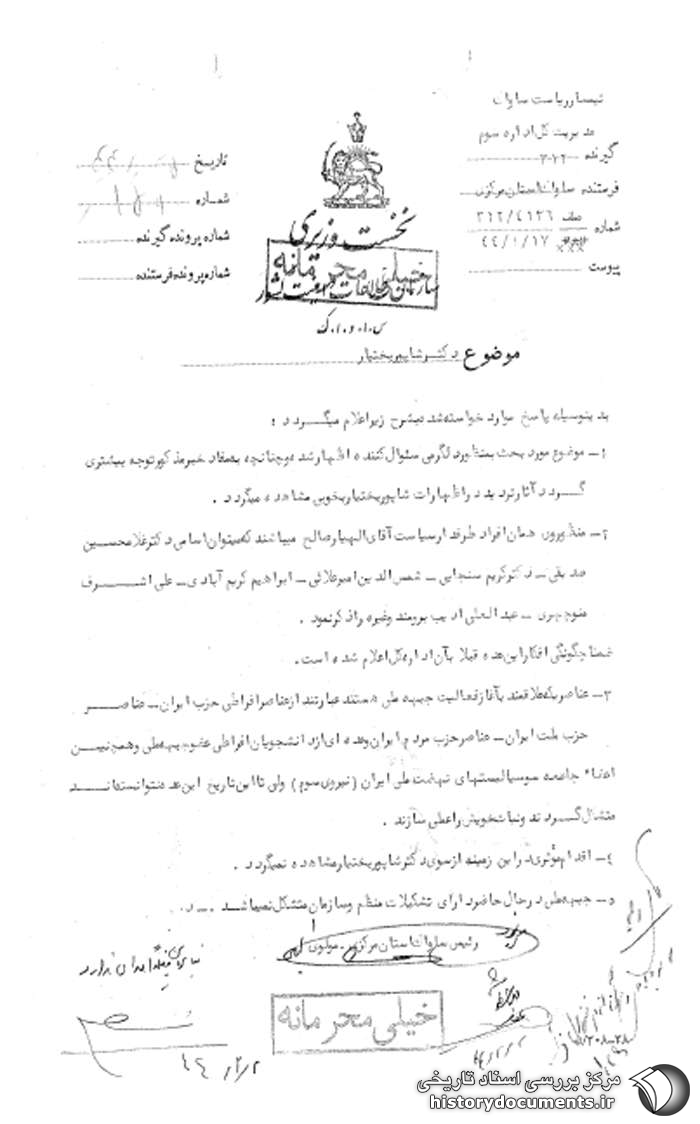 تیمسار ریاست ساواک
مدیریت کل اداره سوم
گیرنده ۳۲۲
فرستنده ساواک استان مرکزی
شماره ۳۱۲/۴۱۲۶
۴۴/۱/۱۷
پیوست
تاریخ
شماره
شماره پرونده گیرنده
شماره پرونده فرستنده
نخست وزیری
سازمان اطلاعات و امنیت کشور
خیلی محرمانه
س.ا.و.ا.ک
موضوع دکتر شاپور بختیار
بدینوسیله پاسخ موارد خواسته شده بشرح زیر اعلام میگردد :
۱- موضوع مورد بحث بمنظور دلگرمی سئوال کننده اظهار شده و چنانچه بمفاد خبر مذکور توجه بیشتری
گردد آثار تردید در اظهارات شاپور بختیار بخوبی مشاهده میگردد .
۲- منظور وی همان افراد طرفدار سیاست آقای الهیار صالح میباشند که میتوان اسامی دکتر غلامحسین
صدیقی - دکتر کریم سنجابی - شمس الدین امیرعلائی - ابراهیم کریم آبادی - علی اشرف
منوچهری - عبدالعلی ادیب برومند وغیره را ذکر نمود .
ضمنا چگونگی افکار این عده قبلا بآن اداره کل اعلام شده است .
۳- عناصریکه علاقمند بآغاز فعالیت جبهه ملی هستند عبارتند از عناصر افراطی حزب ایران - عناصر
حزب ملت ایران - عناصر حزب مردم ایران وعده ای از دانشجویان افراطی عضو جبهه ملی و همچنین
اعضاء جامعه سوسیالیستهای نهضت ملی ایران (نیروی سوم) ولی تا این تاریخ این عده نتوانسته اند
متشکل گردند ونیات خویش را عملی سازند .
۴- اقدام مؤثری در این زمینه از سوی دکتر شاپور بختیار مشاهده نمیگردد .
۵- جبهه ملی در حال حاضر دارای تشکیلات منظم وسازمان متشکل نمیباشد . د .
رئیس ساواک استان مرکزی - مولوی
خیلی محرمانه
۴۴/۲/۲
مرکز بررسی اسناد تاریخی
historydocuments.ir